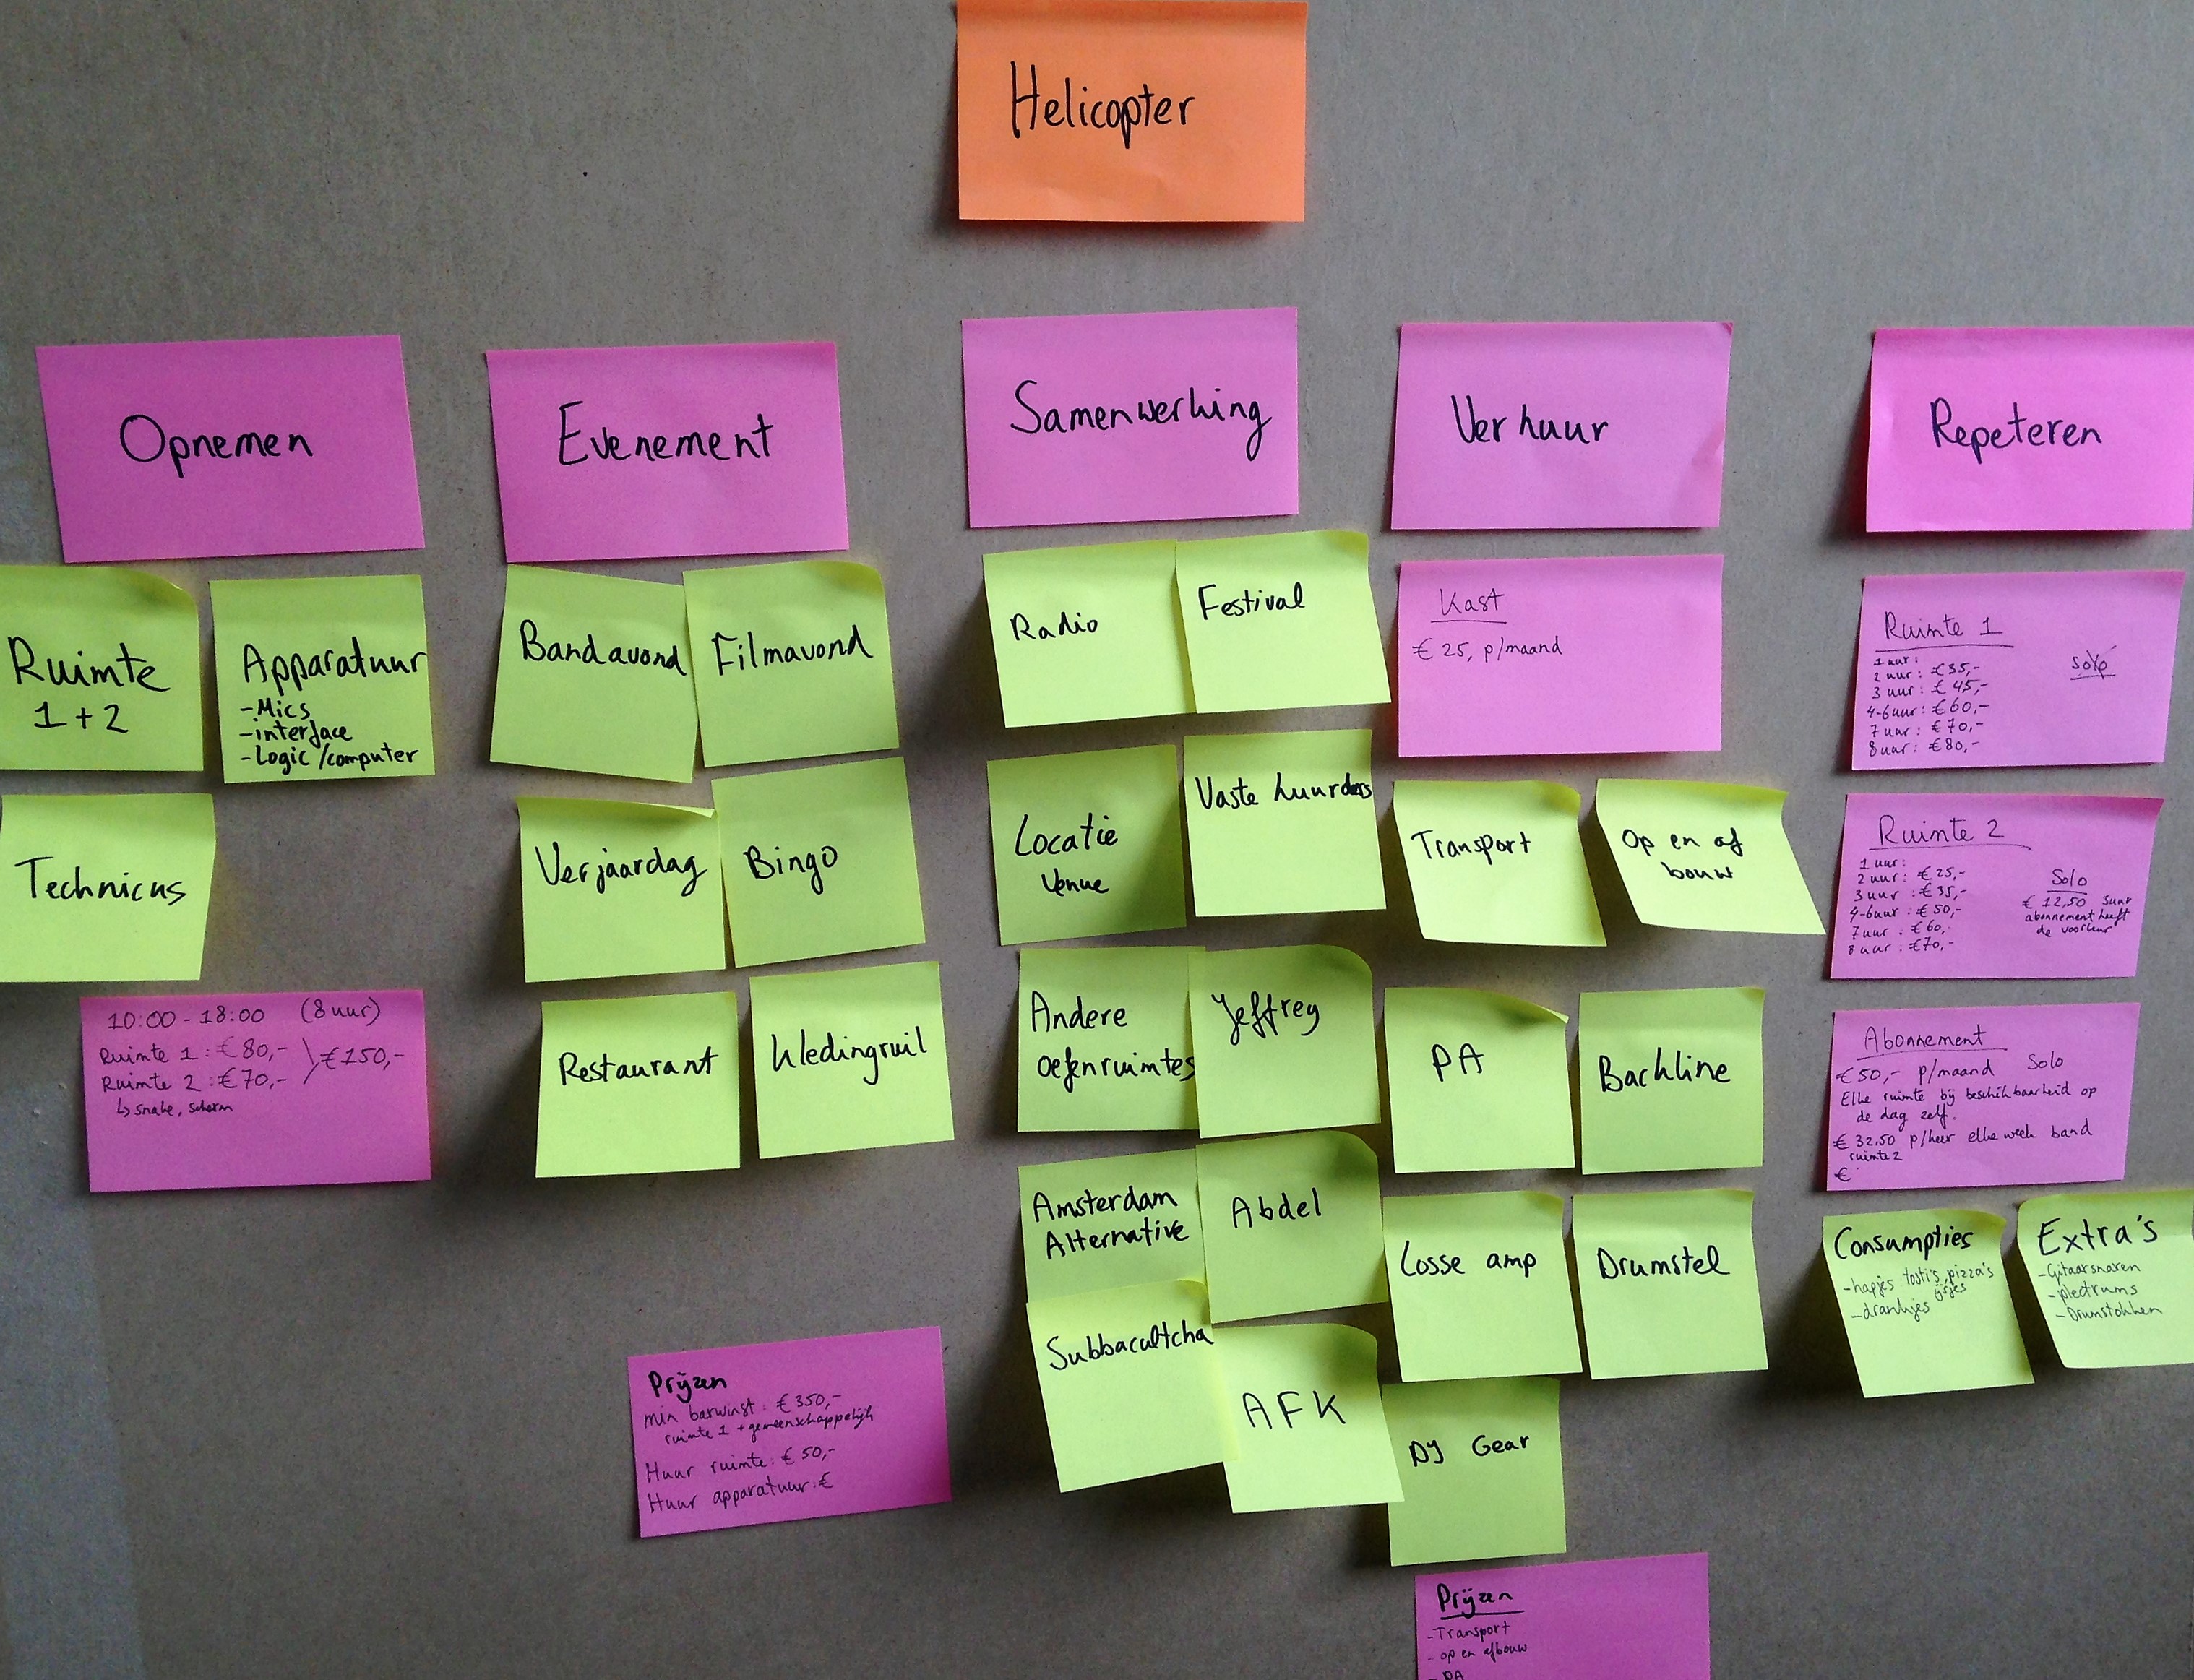 Helicopter
Opnemen
Ruimte
1 + 2
Apparatuur
- Mics
- interface
- Logic / computer
Technicus
10:00 - 18:00 (8 uur)
Ruimte 1 : € 80,-
Ruimte 2 : € 70,- € 150,-
↳ snake, scherm
Evenement
Bandavond
Filmavond
Verjaardag
Bingo
Restaurant
Kledingruil
Prijzen
min barwinst : € 350,-
ruimte 1 + gemeenschappelijk
Huur ruimte : € 50,-
Huur apparatuur : €
Samenwerking
Radio
Festival
Locatie
Venue
Vaste huurders
Andere
oefenruimtes
Jeffrey
Amsterdam
Alternative
Abdel
Subbacultcha
AFK
Verhuur
Kast
€ 25, p/maand
Transport
Op en af
bouw
PA
Backline
Losse amp
Drumstel
DJ Gear
Prijzen
- Transport
- op en afbouw
- PA
Repeteren
Ruimte 1
1 uur :
2 uur : € 35,-
3 uur : € 45,-
4-6 uur : € 60,-
7 uur : € 70,-
8 uur : € 80,-
solo
Ruimte 2
1 uur :
2 uur : € 25,-
3 uur : € 35,-
4-6 uur : € 50,-
7 uur : € 60,-
8 uur : € 70,-
Solo
€ 12,50 3uur
abonnement heeft
de voorkeur
Abonnement
€ 50,- p/maand Solo
Elke ruimte bij beschikbaarheid op
de dag zelf.
€ 32,50 p/keer elke week band
ruimte 2
€
Consumpties
- hapjes tosti's, pizza's
ijsjes
- drankjes
Extra's
- Gitaarsnaren
- plectrums
- Drumstokken